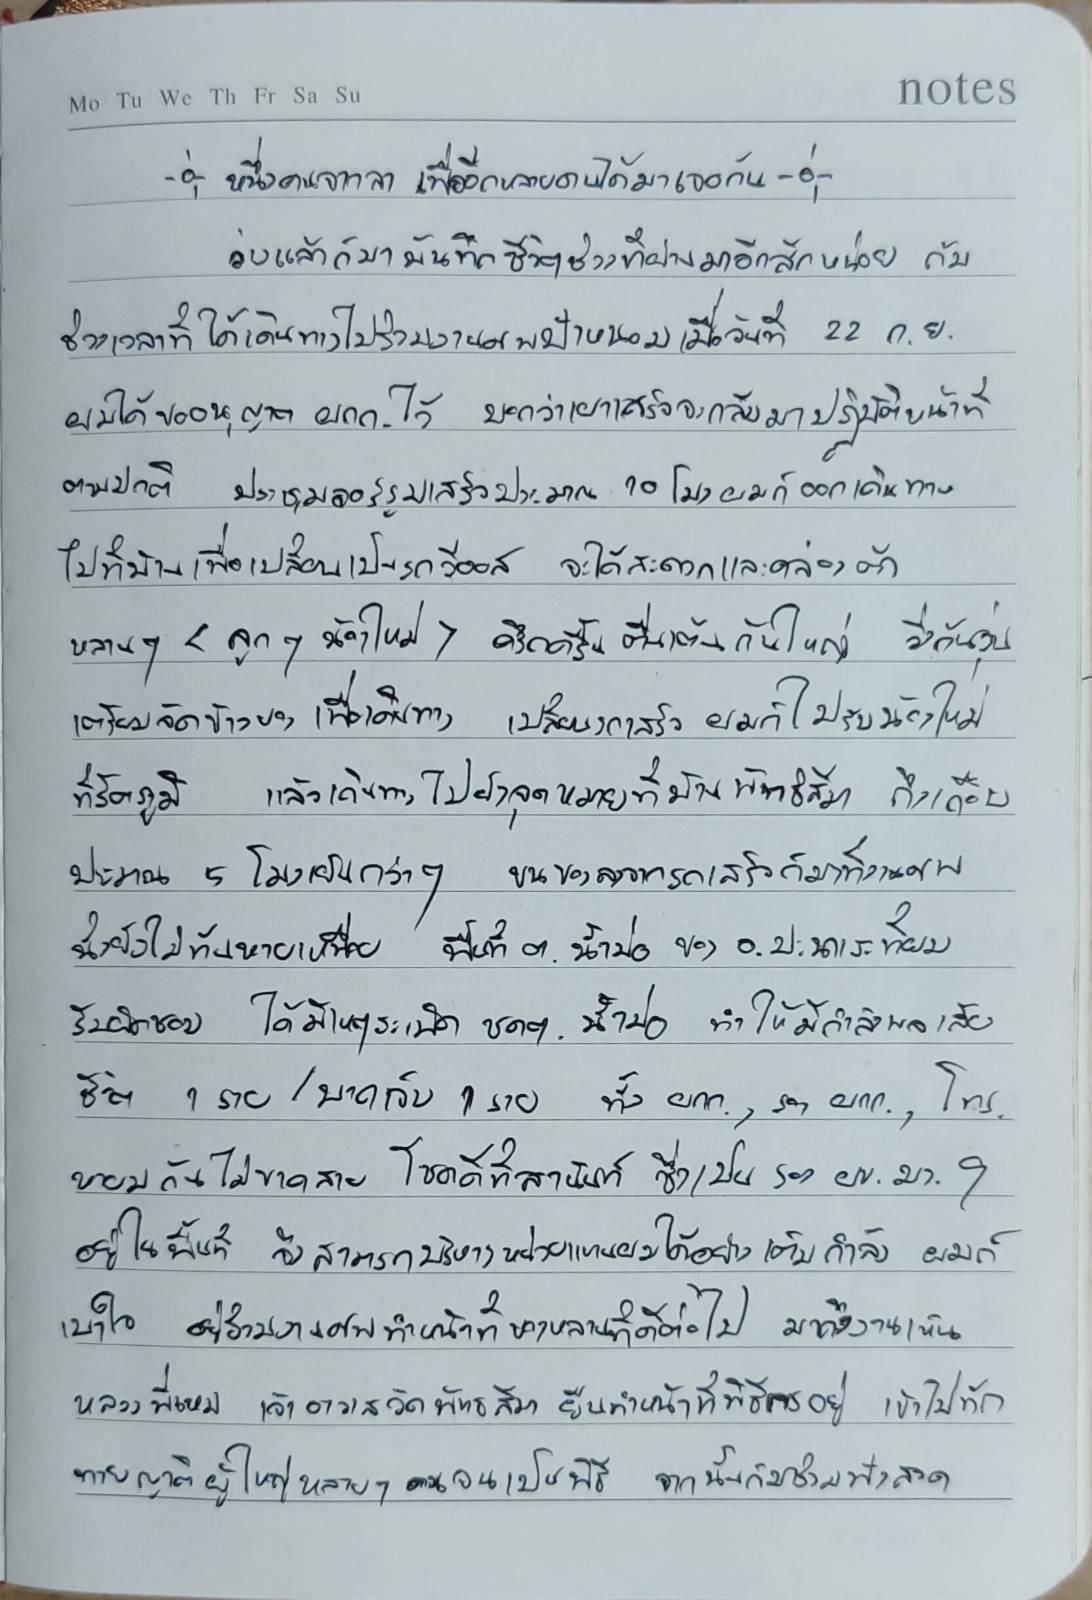 Mo Tu We Th Fr Sa Su
notes
หนึ่งคนจากลา เพื่ออีกหลายคนได้มาเจอกัน
แล้วก็มาบันทึกชีวิตช่วงที่ผ่านมาอีกสักหน่อย กับ
ช่วงเวลาที่ได้เดินทางไปร่วมงานศพป้าหนอมเมื่อวันที่ 22 ก.ย.
ผมได้ขออนุญาต ผกก.ไว้ จะกลับมาปฏิบัติหน้าที่
ตามปกติ ประชุมเสร็จประมาณ 10 โมงผมก็ออกเดินทาง
ไปที่บ้านเพื่อเปลี่ยนเป็นรถวีออส จะได้สะดวกและคล่องตัว
หลานๆ < ลูกๆ น้องใหม่ > คึกคักตื่นเต้นกันใหญ่ วิ่งกันวุ่น
เตรียมจัดข้าวของเพื่อเดินทาง เปลี่ยนรถเสร็จ ผมก็ไปรับน้องใหม่
ที่รัตภูมิ แล้วเดินทางไปยังจุดหมายที่บ้านพัทธสีมา ถึงเกือบ
ประมาณ 5 โมงเย็นกว่าๆ ขนของลงจากรถเสร็จก็มาที่งานศพ
นั่งยังไม่ทันหายเหนื่อย พื้นที่ ต.น้ำบ่อ ของ อ.ปะนาเระ ที่ผม
รับผิดชอบ ได้มีเหตุระเบิด ชคต.น้ำบ่อ ทำให้มีกำลังพลเสีย
ชีวิต 1 ราย / บาดเจ็บ 1 ราย ทั้ง ผกก., รอง ผกก., โทร.
หาผมกันไม่ขาดสาย โชคดีที่สานันท์ ซึ่งเป็น รอง ๆ
อยู่ในพื้นที่ จึงสามารถบริหารหน่วยแทนผมได้อย่างเต็มกำลัง ผมก็
เบาใจ อยู่ร่วมงานศพทำหน้าที่ของหลานที่ดีต่อไป มาถึงงานเห็น
หลวงพี่เหม เจ้าอาวาสวัดพัทธสีมา ยืนทำหน้าที่พิธีกรอยู่ เข้าไปทัก
ทายญาติผู้ใหญ่หลายๆ คนจนเป็นพิธี จากนั้นก็มาร่วมฟังสวด